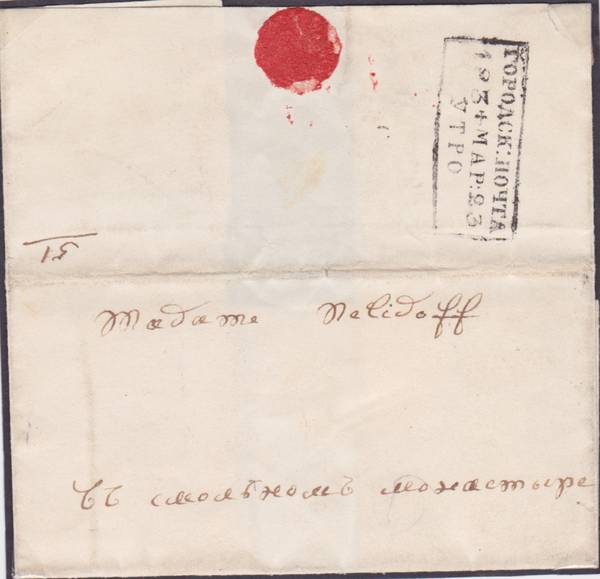 ГОРОДСК:ПОЧТА
1834 МАР.23
УТРО
51
Madame Nelidoff
въ смольномъ монастыре